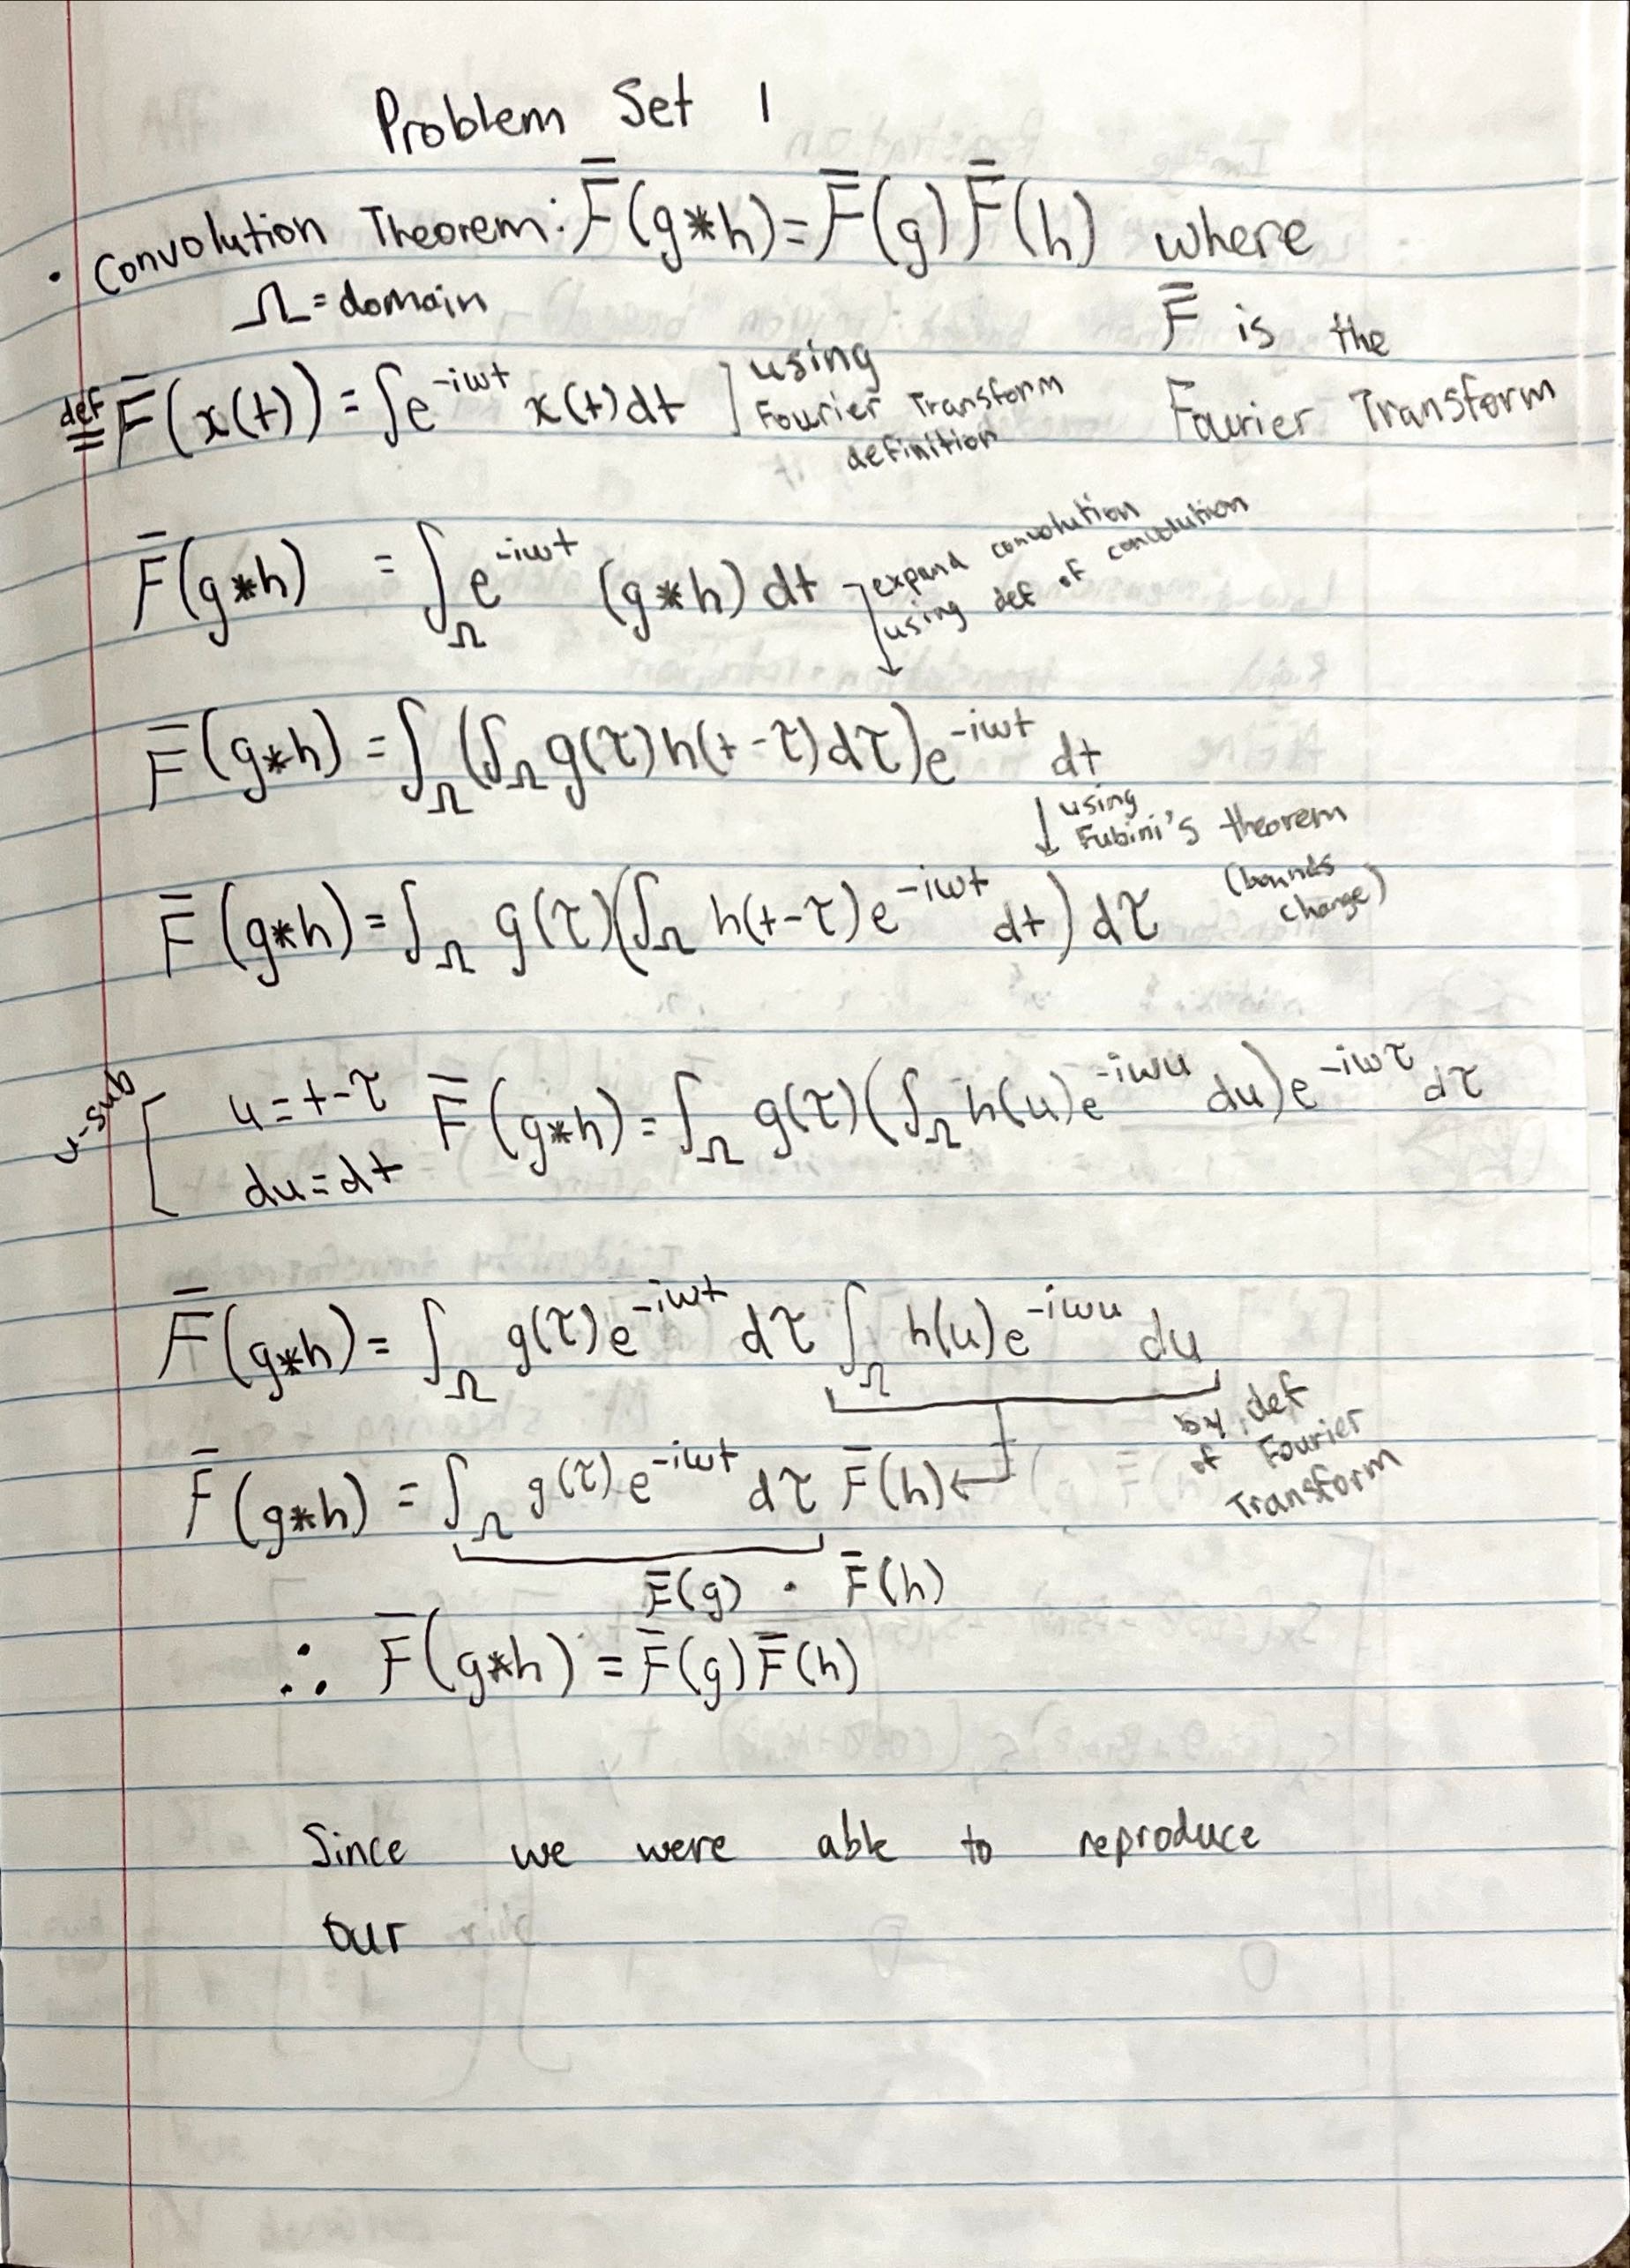 Problem Set 1
• Convolution Theorem: F̄(g*h) = F̄(g) F̄(h) where
Ω = domain
F̄ is the
Fourier Transform
def= F̄(x(t)) = ∫e^{-iωt} x(t)dt ] using
Fourier Transform
definition
F̄(g*h) = ∫_Ω e^{-iωt} (g*h) dt
expand convolution
using def of convolution
F̄(g*h) = ∫_Ω (∫_Ω g(τ)h(t-τ)dτ)e^{-iωt} dt
↓ using
Fubini's theorem
(bounds
change)
F̄(g*h) = ∫_Ω g(τ)(∫_Ω h(t-τ)e^{-iωt} dt) dτ
u-sub [ u = t-τ
du = dt
F̄(g*h) = ∫_Ω g(τ)(∫_Ω h(u)e^{-iωu} du)e^{-iωτ} dτ
F̄(g*h) = ∫_Ω g(τ)e^{-iωt} dτ ∫_Ω h(u)e^{-iωu} du
by def
of Fourier
Transform
F̄(g*h) = ∫_Ω g(τ)e^{-iωt} dτ F̄(h) ←
F̄(g) · F̄(h)
∴ F̄(g*h) = F̄(g)F̄(h)
Since we were able to reproduce
our